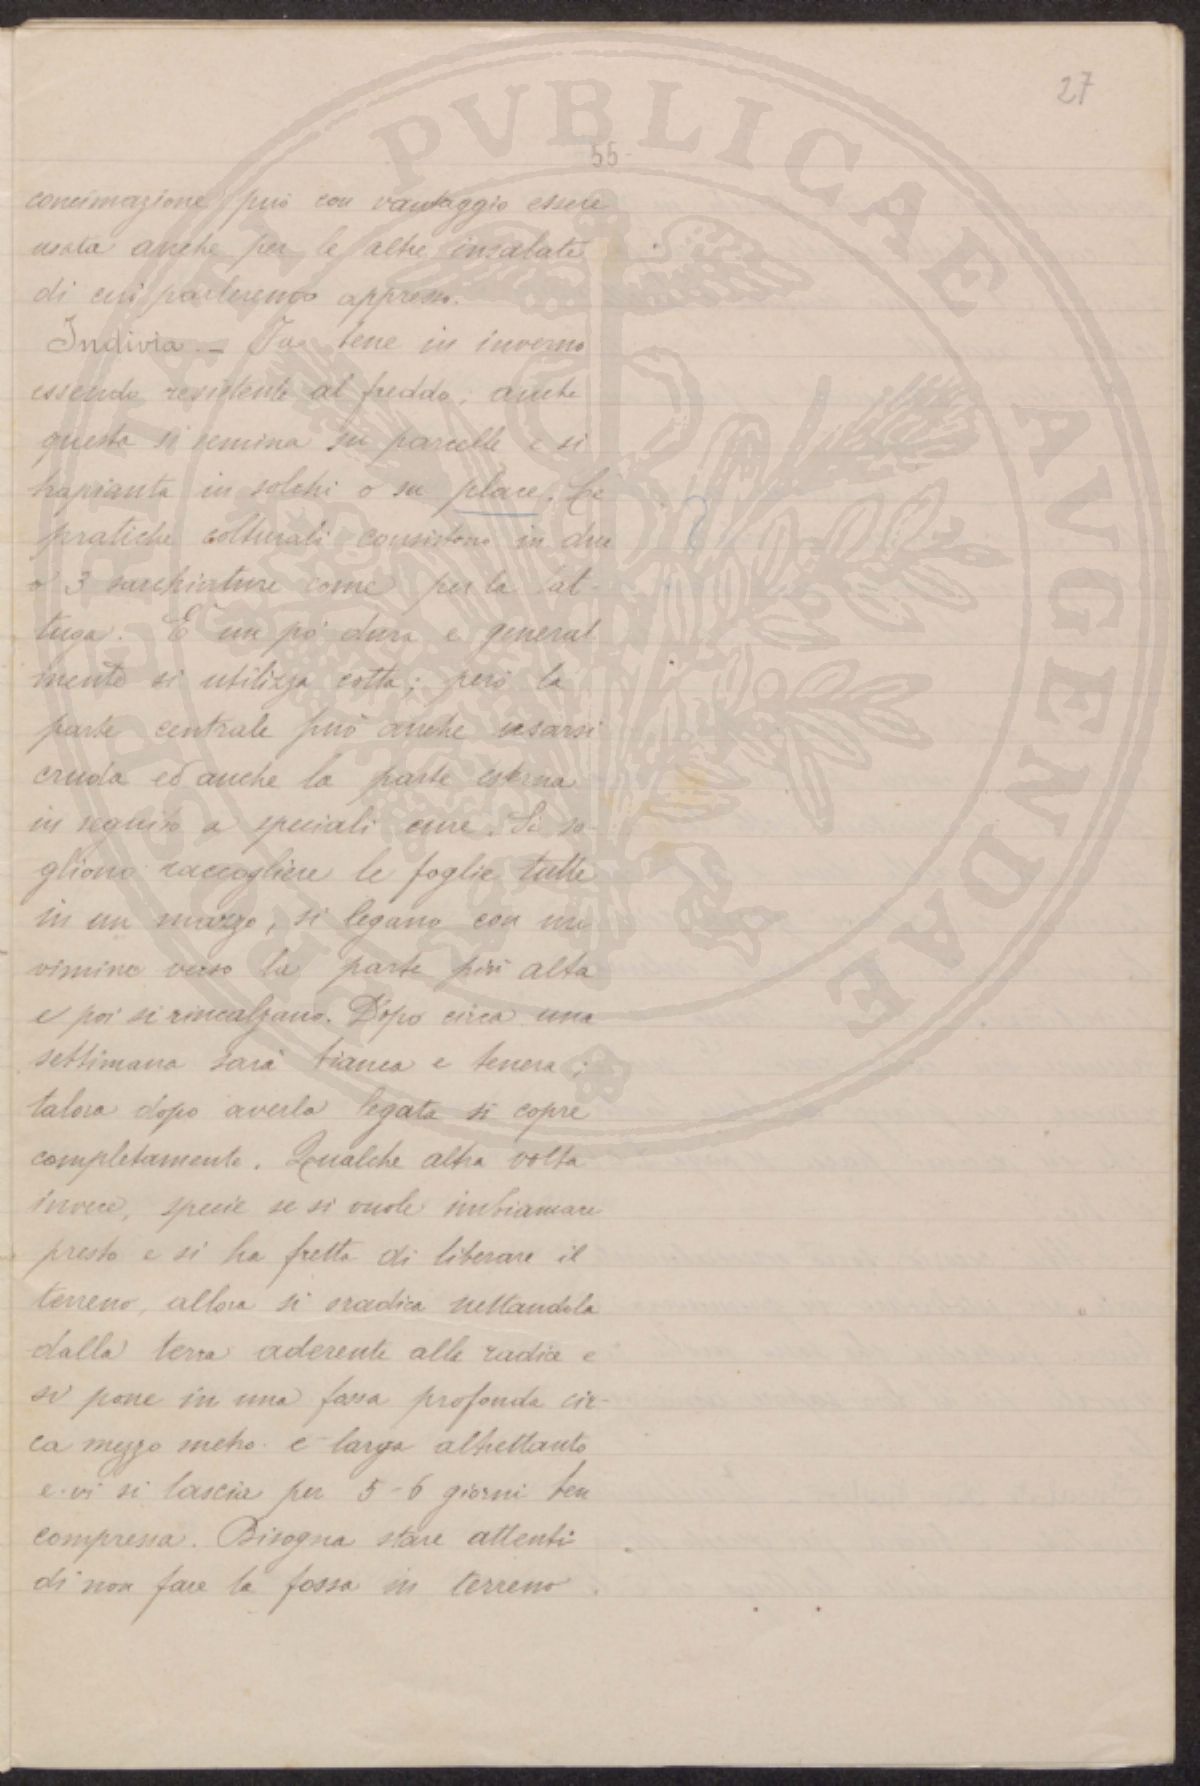 27
55
concimazione può con vantaggio essere
usata anche per le altre insalate
di cui parleremo appresso.
Indivia. - Fa bene in inverno
essendo resistente al freddo; anche
questa si semina su parcelle e si
trapianta in solchi o su place. Le
pratiche colturali consistono in due
o 3 sarchiature come per la lat-
tuga. È un pò dura e general
mente si utilizza cotta; però la
parte centrale può anche usarsi
cruda ed anche la parte esterna
in seguito a speciali cure. Si so-
gliono raccogliere le foglie tutte
in un mazzo, si legano con un
vimine verso la parte più alta
e poi si rincalzano. Dopo circa una
settimana sarà bianca e tenera;
talora dopo averla legata si copre
completamente. Qualche altra volta
invece, specie se si vuole imbiancare
presto e si ha fretta di liberare il
terreno, allora si sradica nettandola
dalla terra aderente alle radice e
si pone in una fossa profonda cir-
ca mezzo metro e larga altrettanto
e vi si lascia per 5-6 giorni ben
compressa. Bisogna stare attenti
di non fare la fossa in terreno
PVBLICAE AVGENDAE